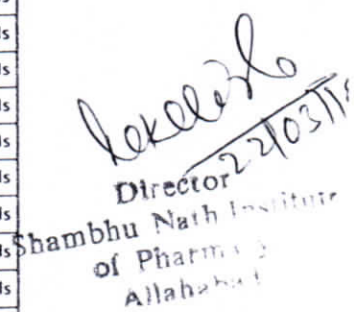 ls
ls
ls
ls
ls
ls
ls
ls
22/03/1
Director
Shambhu Nath Institute
of Pharm
Allahabad